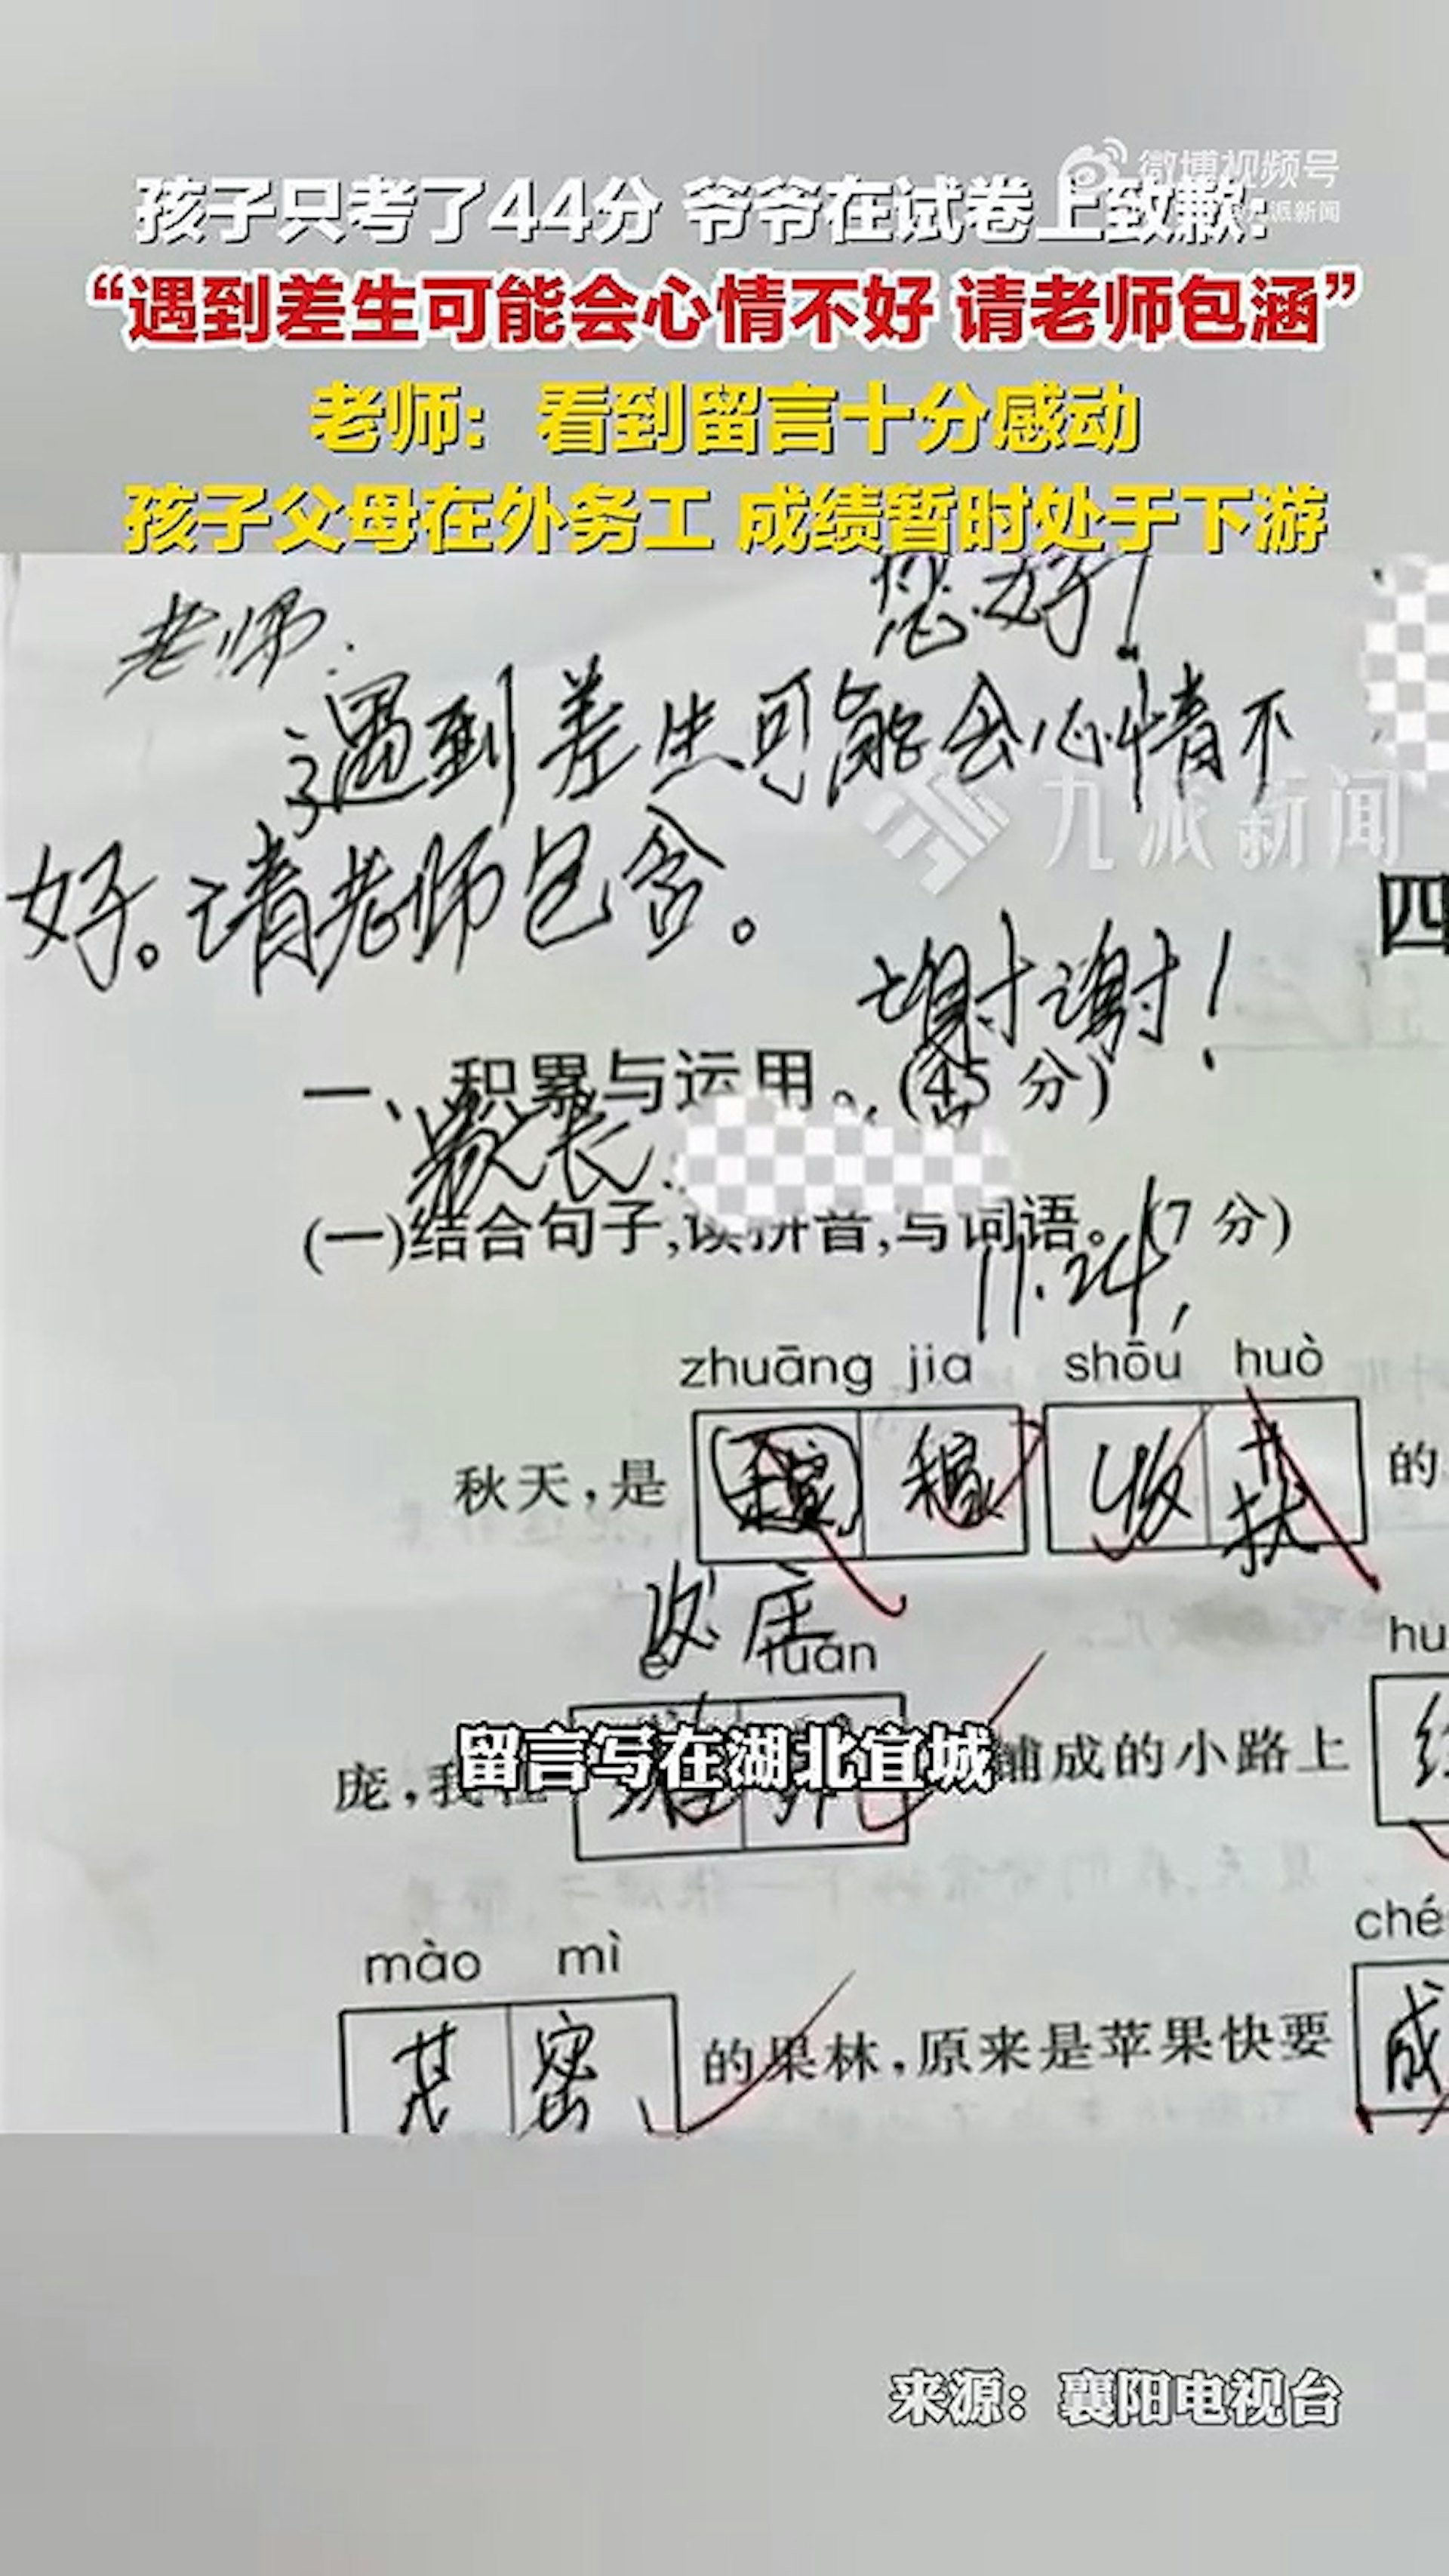 微博视频号
九派新闻
孩子只考了44分 爷爷在试卷上致歉：
“遇到差生可能会心情不好 请老师包涵”
老师：看到留言十分感动
孩子父母在外务工 成绩暂时处于下游
老师： 您好！
遇到差生可能会心情不
好。请老师包含。
九派新闻
四
谢谢！
一、积累与运用。(45分)
家长
(一)结合句子，读拼音，写词语。(7分)
11.24
zhuāng jia shōu huò
秋天，是 稼 收 的
庄
tuán
hu
庞，我 铺成的小路上
留言写在湖北宜城
mào mì
ché
密 的果林，原来是苹果快要 成
来源：襄阳电视台